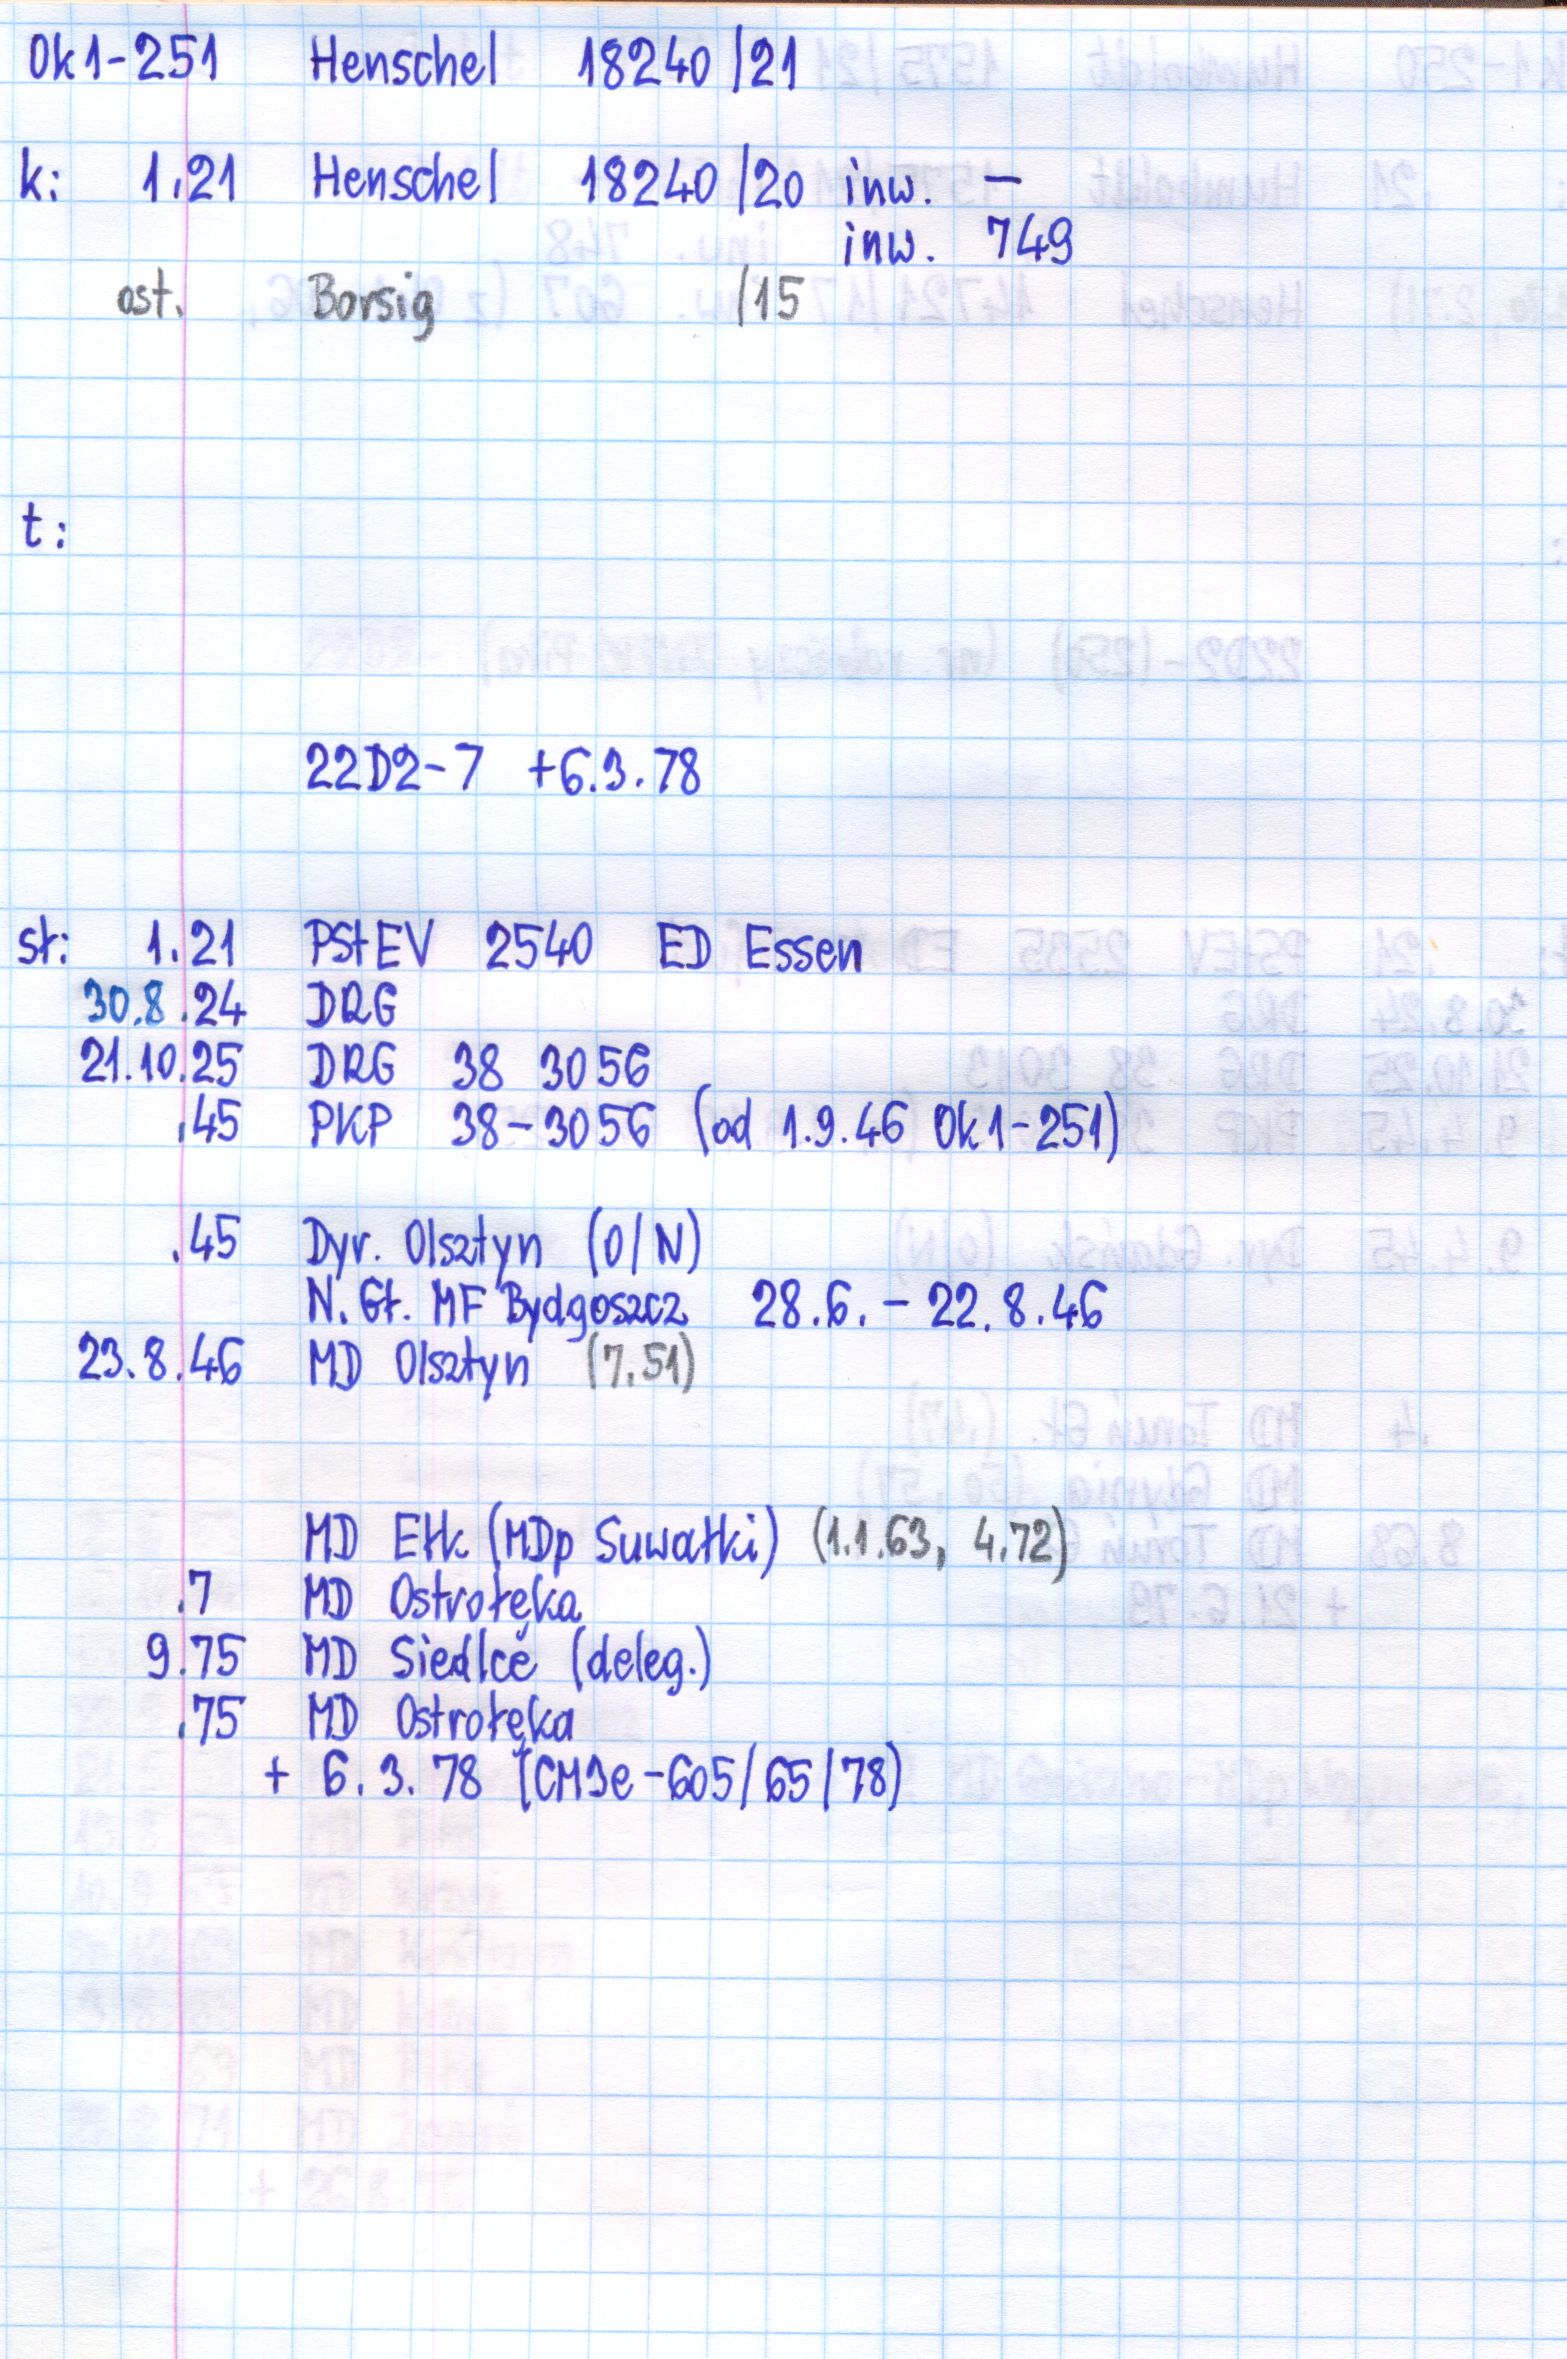 Ok1-251 Henschel 18240/21
k: 1.21 Henschel 18240/20 inw. –
inw. 749
ost. Borsig /15
t:
22D2-7 +6.3.78
st: 1.21 PStEV 2540 ED Essen
30.8.24 DRG
21.10.25 DRG 38 3056
.45 PKP 38-3056 (od 1.9.46 Ok1-251)
.45 Dyr. Olsztyn (O/N)
N. Gł. MF Bydgoszcz 28.6. – 22.8.46
23.8.46 MD Olsztyn (7.51)
MD Ełk (MDp Suwałki) (1.1.63, 4.72)
.7 MD Ostrołęka
9.75 MD Siedlce (deleg.)
.75 MD Ostrołęka
+ 6.3.78 (CM3e-605/65/78)